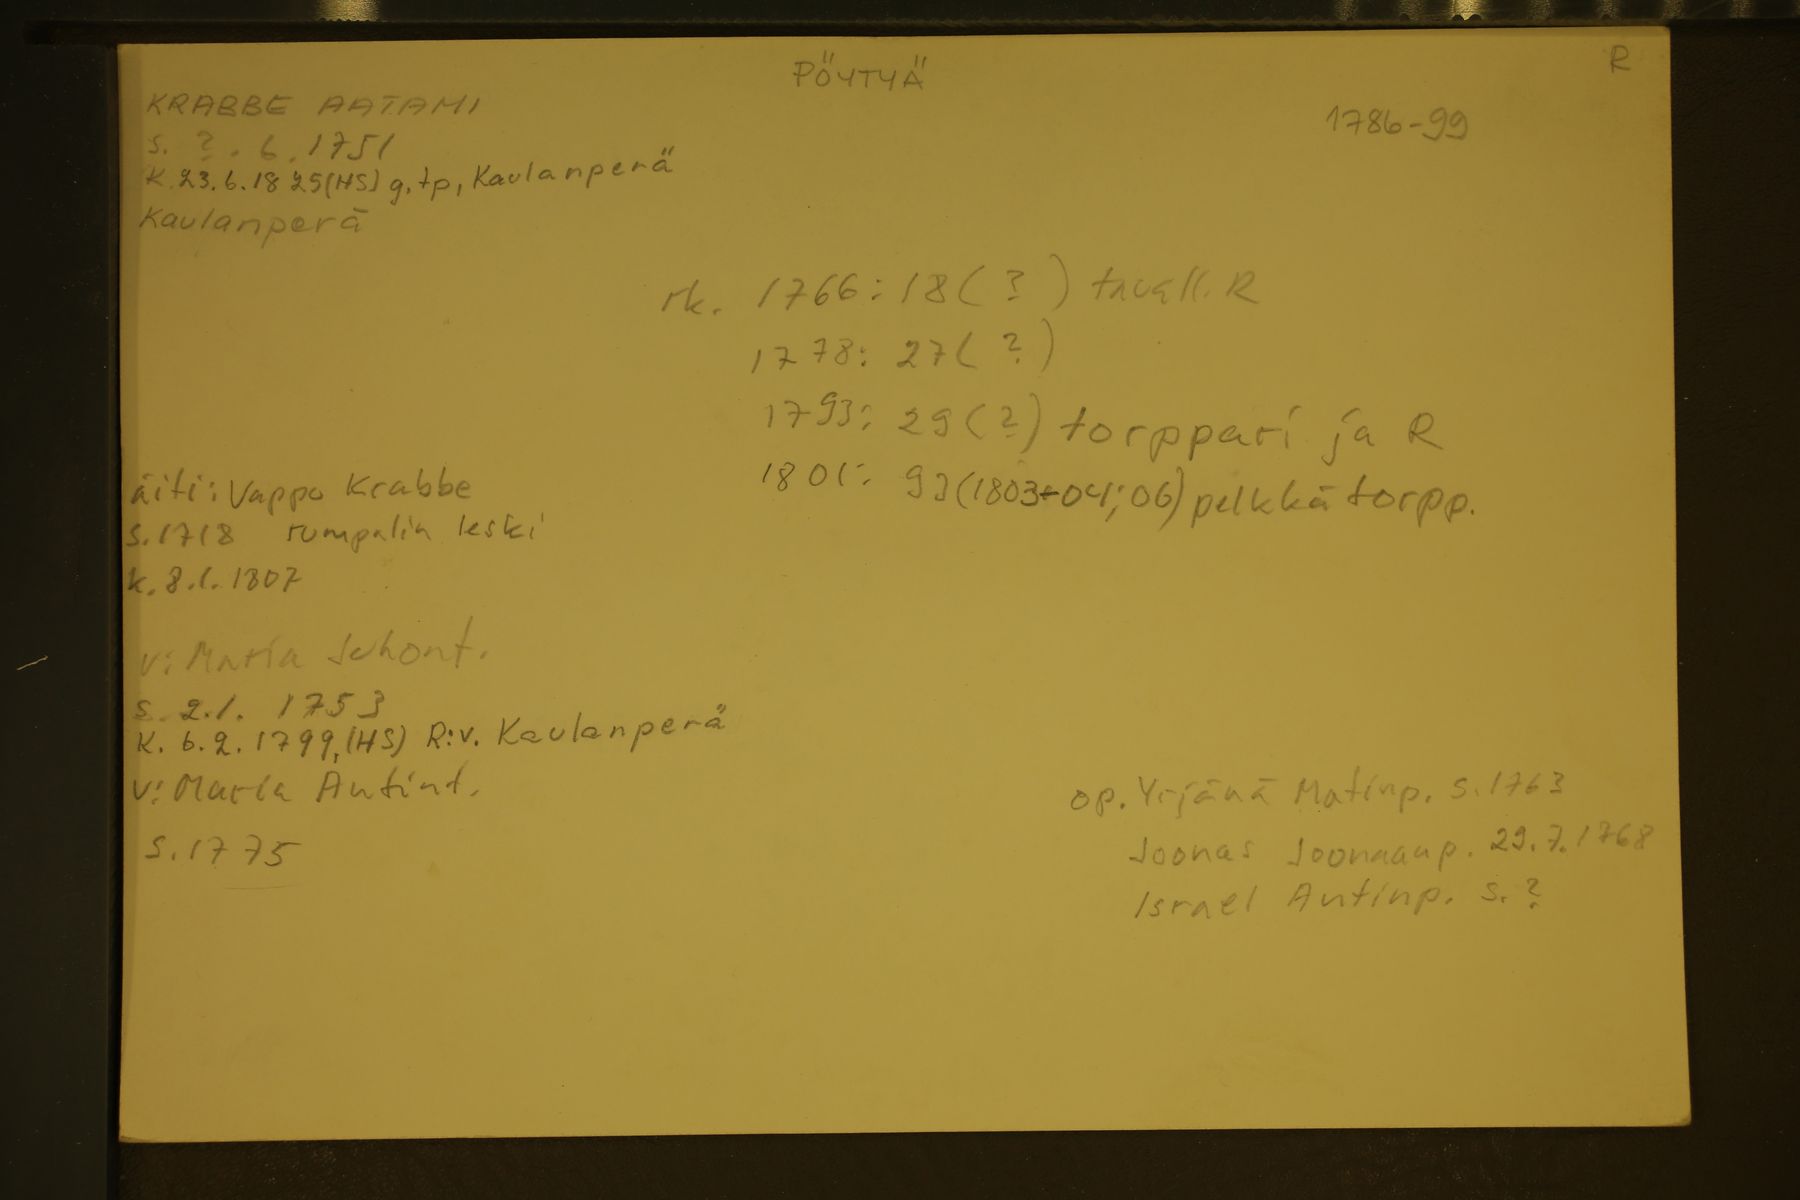 PÖYTYÄ
R
KRABBE AATAMI
1786-99
s. ?. 6. 1751
K. 23.6.1825(HS) g. tp, Kaulanperä
Kaulanperä
rk. 1766: 18( ? ) tavall. R
1778: 27( ? )
1793: 29(?) torppari ja R
1801: 93(1803-04; 06) pelkkä torpp.
äiti: Vappu Krabbe
s. 1718 rumpalin leski
k. 8.1. 1807
v: Maria Juhont.
s. 2.1. 1753
K. 6.2. 1799, (HS) R:v. Kaulanperä
v: Maria Antint.
s. 1775
op. Yrjänä Matinp. s. 1763
Joonas Joonaanp. 29.7.1768
Israel Antinp. s. ?